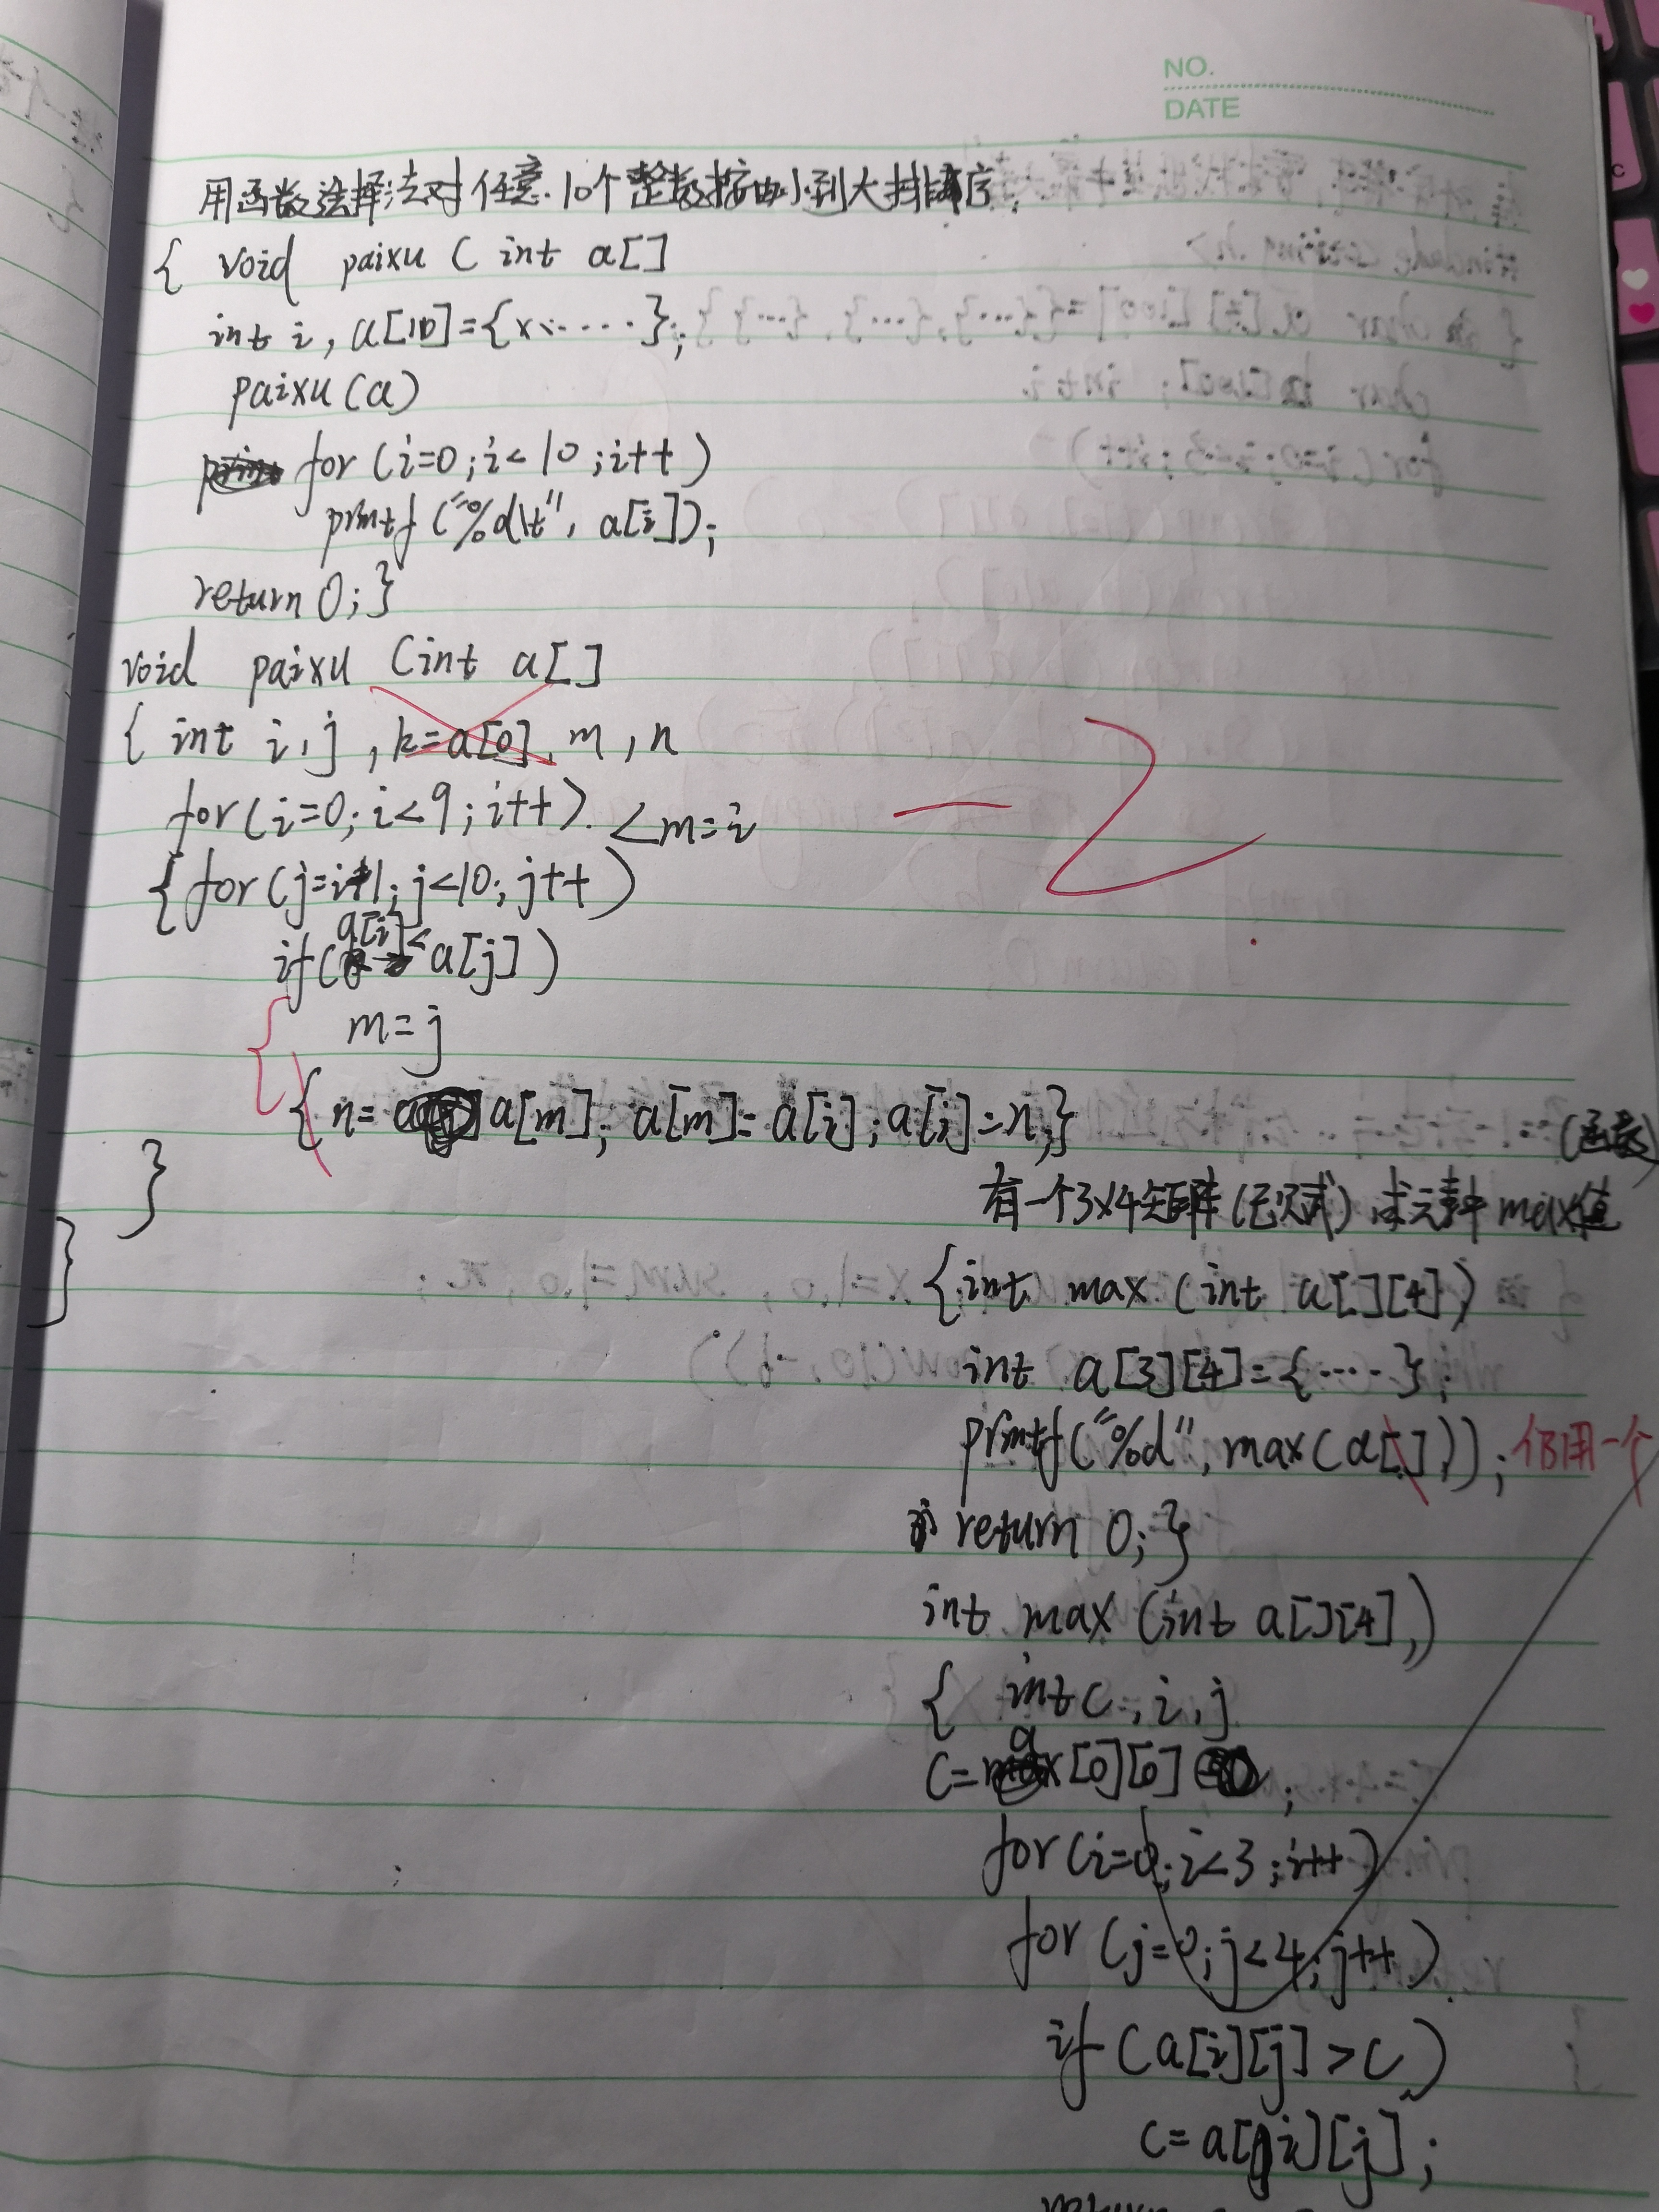 NO.
DATE
用函数选择法对任意10个整数按由小到大排序.
{ void paixu ( int a[]
int i, a[10]={x、.....};
paixu(a)
for (i=0;i<10;i++)
printf ("%d\t", a[i]);
return 0;}
void paixu (int a[]
{ int i,j, k=a[0], m, n
for(i=0;i<9;i++) <m=i
{ for(j=i+1;j<10;j++)
if(a[i]<a[j])
m=j
{ n= a[m]; a[m]=a[i];a[i]=n;}
}
}
-2
(函数)
有一个3x4矩阵(已赋) 求元素中max值
{int max (int a[][4])
int a[3][4]={·····};
printf("%d",max(a[])); 仍用一个
return 0; }
int max (int a[][4],)
{ int c, i, j
c=a[0][0] ;
for(i=0;i<3;i++)
for(j=0;j<4;j++)
if (a[i][j]>c)
c=a[i][j];
return